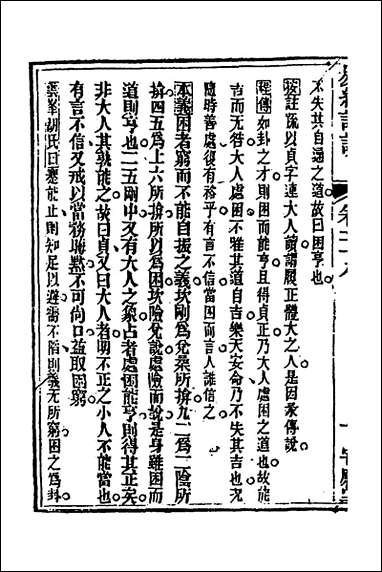 不失其自通之道故曰困亨也
按註疏以貞字連大人讀謂履正體大之人是因彖傳說
程傳如卦之才則困而能亨且得貞正乃大人處困之道也故能
吉而无咎大人處困不唯其道自吉樂天安命乃不失其吉也况
隨時善處復有裕乎有言不信當困而言人誰信之
本義困者窮而不能自振之義坎剛爲兌柔所揜九二爲二陰所
揜四五爲上六所揜所以爲困坎險兌說處險而說是身雖困而
道則亨也二五剛中又有大人之象占者處困能亨則得其正矣
非大人其孰能之故曰貞又曰大人者明不正之小人不能當也
有言不信又戒以當務晦默不可尚口益取困窮
雲峯胡氏曰遯能止則知足以避需不陷則義无所窮困之爲卦